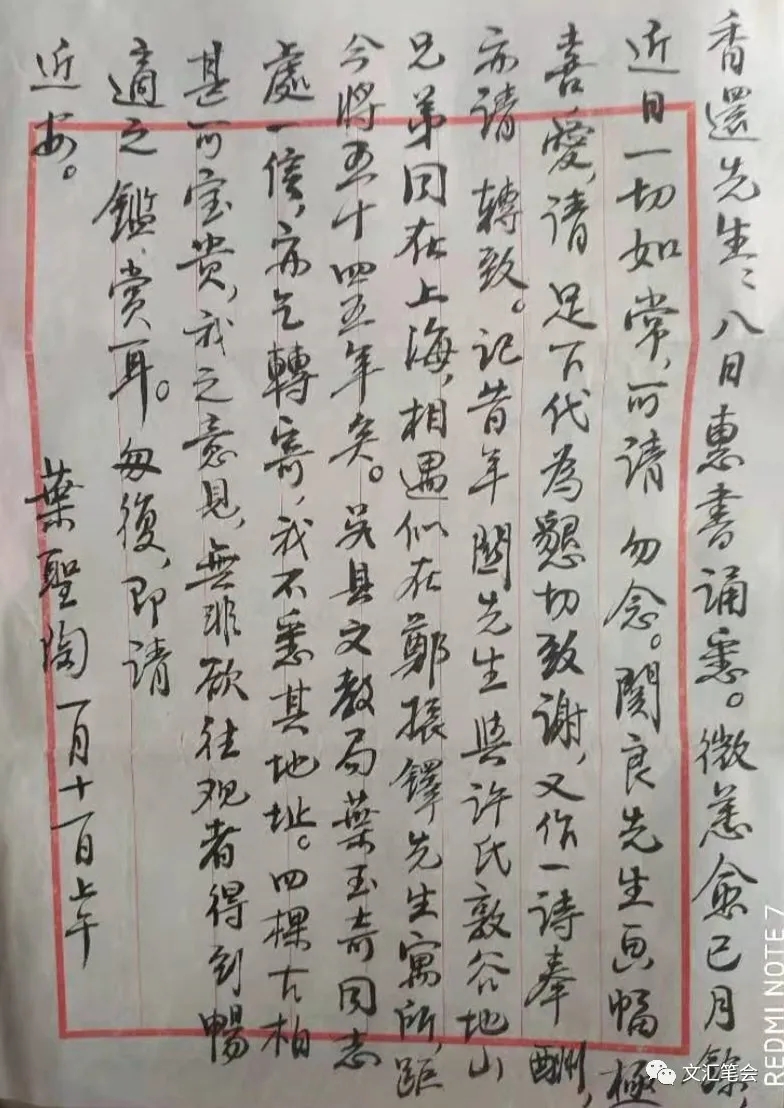 香還先生：八日惠書誦悉。微恙愈已月餘，
近日一切如常，可請 勿念。関良先生画幅極
喜愛，請 足下代為懇切致謝，又作一詩奉酬，
亦請 轉致。記昔年関先生與许氏敦谷地山
兄弟同在上海，相遇似在鄭振鐸先生寓所，距
今將五十四五年矣。吴县文教局葉玉奇同志
處一信，亦乞轉寄，我不悉其地址。四棵古柏
甚可宝贵，我之意見，無非欲往观者得到暢
適之鑑赏耳。匆復，即請
近安。
葉聖陶 一月十一日上午
文汇笔会
REDMI NOTE 7